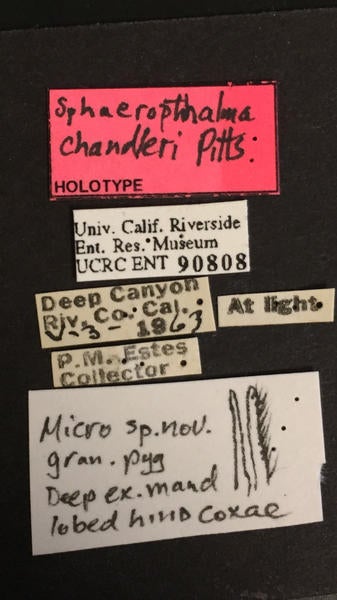 Sphaeropthalma
chandleri Pitts:
HOLOTYPE
Univ. Calif. Riverside
Ent. Res. Museum
UCRC ENT 90808
Deep Canyon
Riv. Co. Cal.
V-3-1963
At light.
P.M. Estes
Collector
Micro sp. nov.
gran. pyg
Deep ex. mand
lobed hind coxae